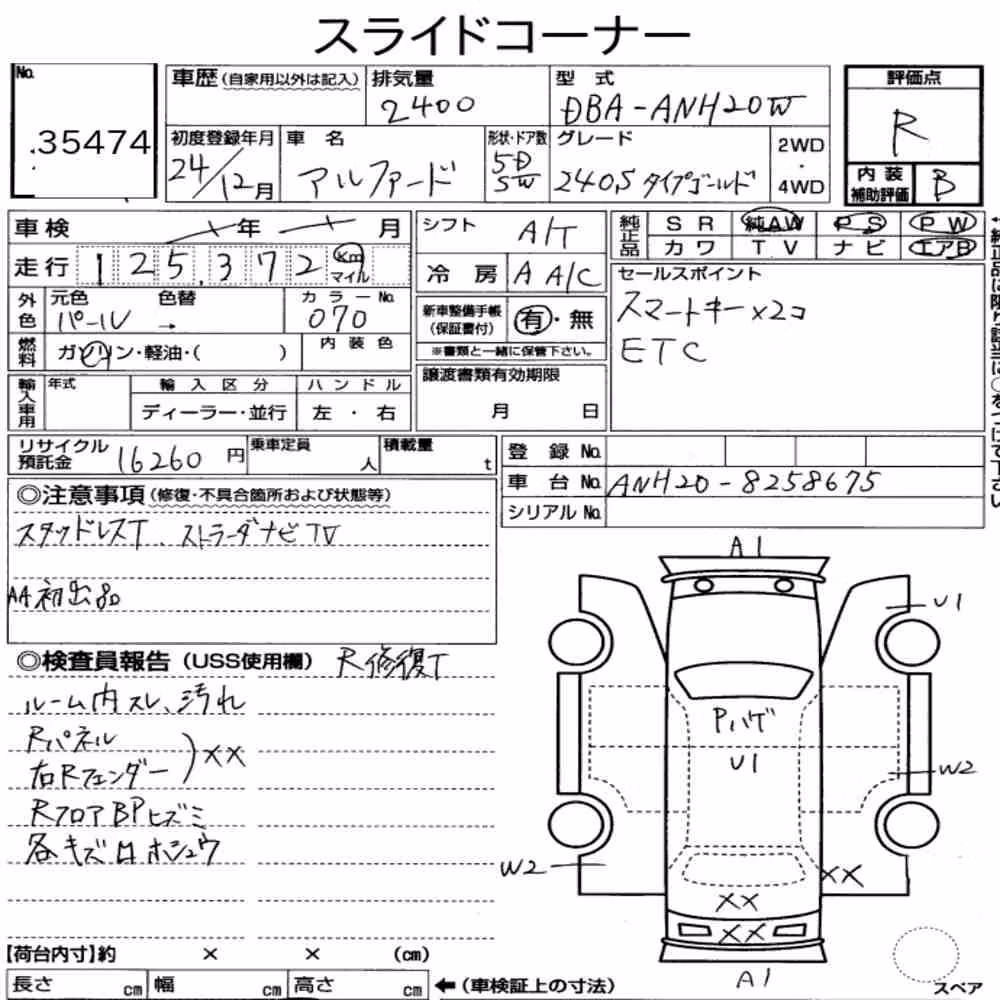 スライドコーナー
No.
35474
車歴(自家用以外は記入)
排気量
2400
型式
DBA-ANH20W
評価点
R
初度登録年月
24/12月
車名
アルファード
形状・ドア数
5D
SW
グレード
240S タイプゴールド
2WD
・
4WD
内装
補助評価
B
車検
年
月
走行
125,372
Km
マイル
シフト
A/T
冷房
A A/C
純正品
SR 純AW PS PW
カワ TV ナビ エアB
外色
元色
パール
色替
→
カラーNo.
070
燃料
ガソリン・軽油・( )
内装色
新車整備手帳
(保証書付)
有・無
※書類と一緒に保管下さい。
セールスポイント
スマートキー×2コ
ETC
輸入車用
年式
輸入区分
ディーラー・並行
ハンドル
左・右
譲渡書類有効期限
月 日
リサイクル
預託金
16260円
乗車定員
人
積載量
t
登録No.
車台No.
ANH20-8258675
シリアルNo.
◎注意事項(修復・不具合箇所および状態等)
スタッドレスT、ストラーダナビTV
AA初出品
◎検査員報告(USS使用欄) R修復T
ルーム内スレ、汚れ
Rパネル
右Rフェンダー
)××
RフロアBPヒズミ
各キズ凹ホシュウ
A1
U1
Pハゲ
U1
W2
W2
××
××
××
A1
【荷台内寸】約 × × (cm)
長さ cm
幅 cm
高さ cm
←(車検証上の寸法)
スペア